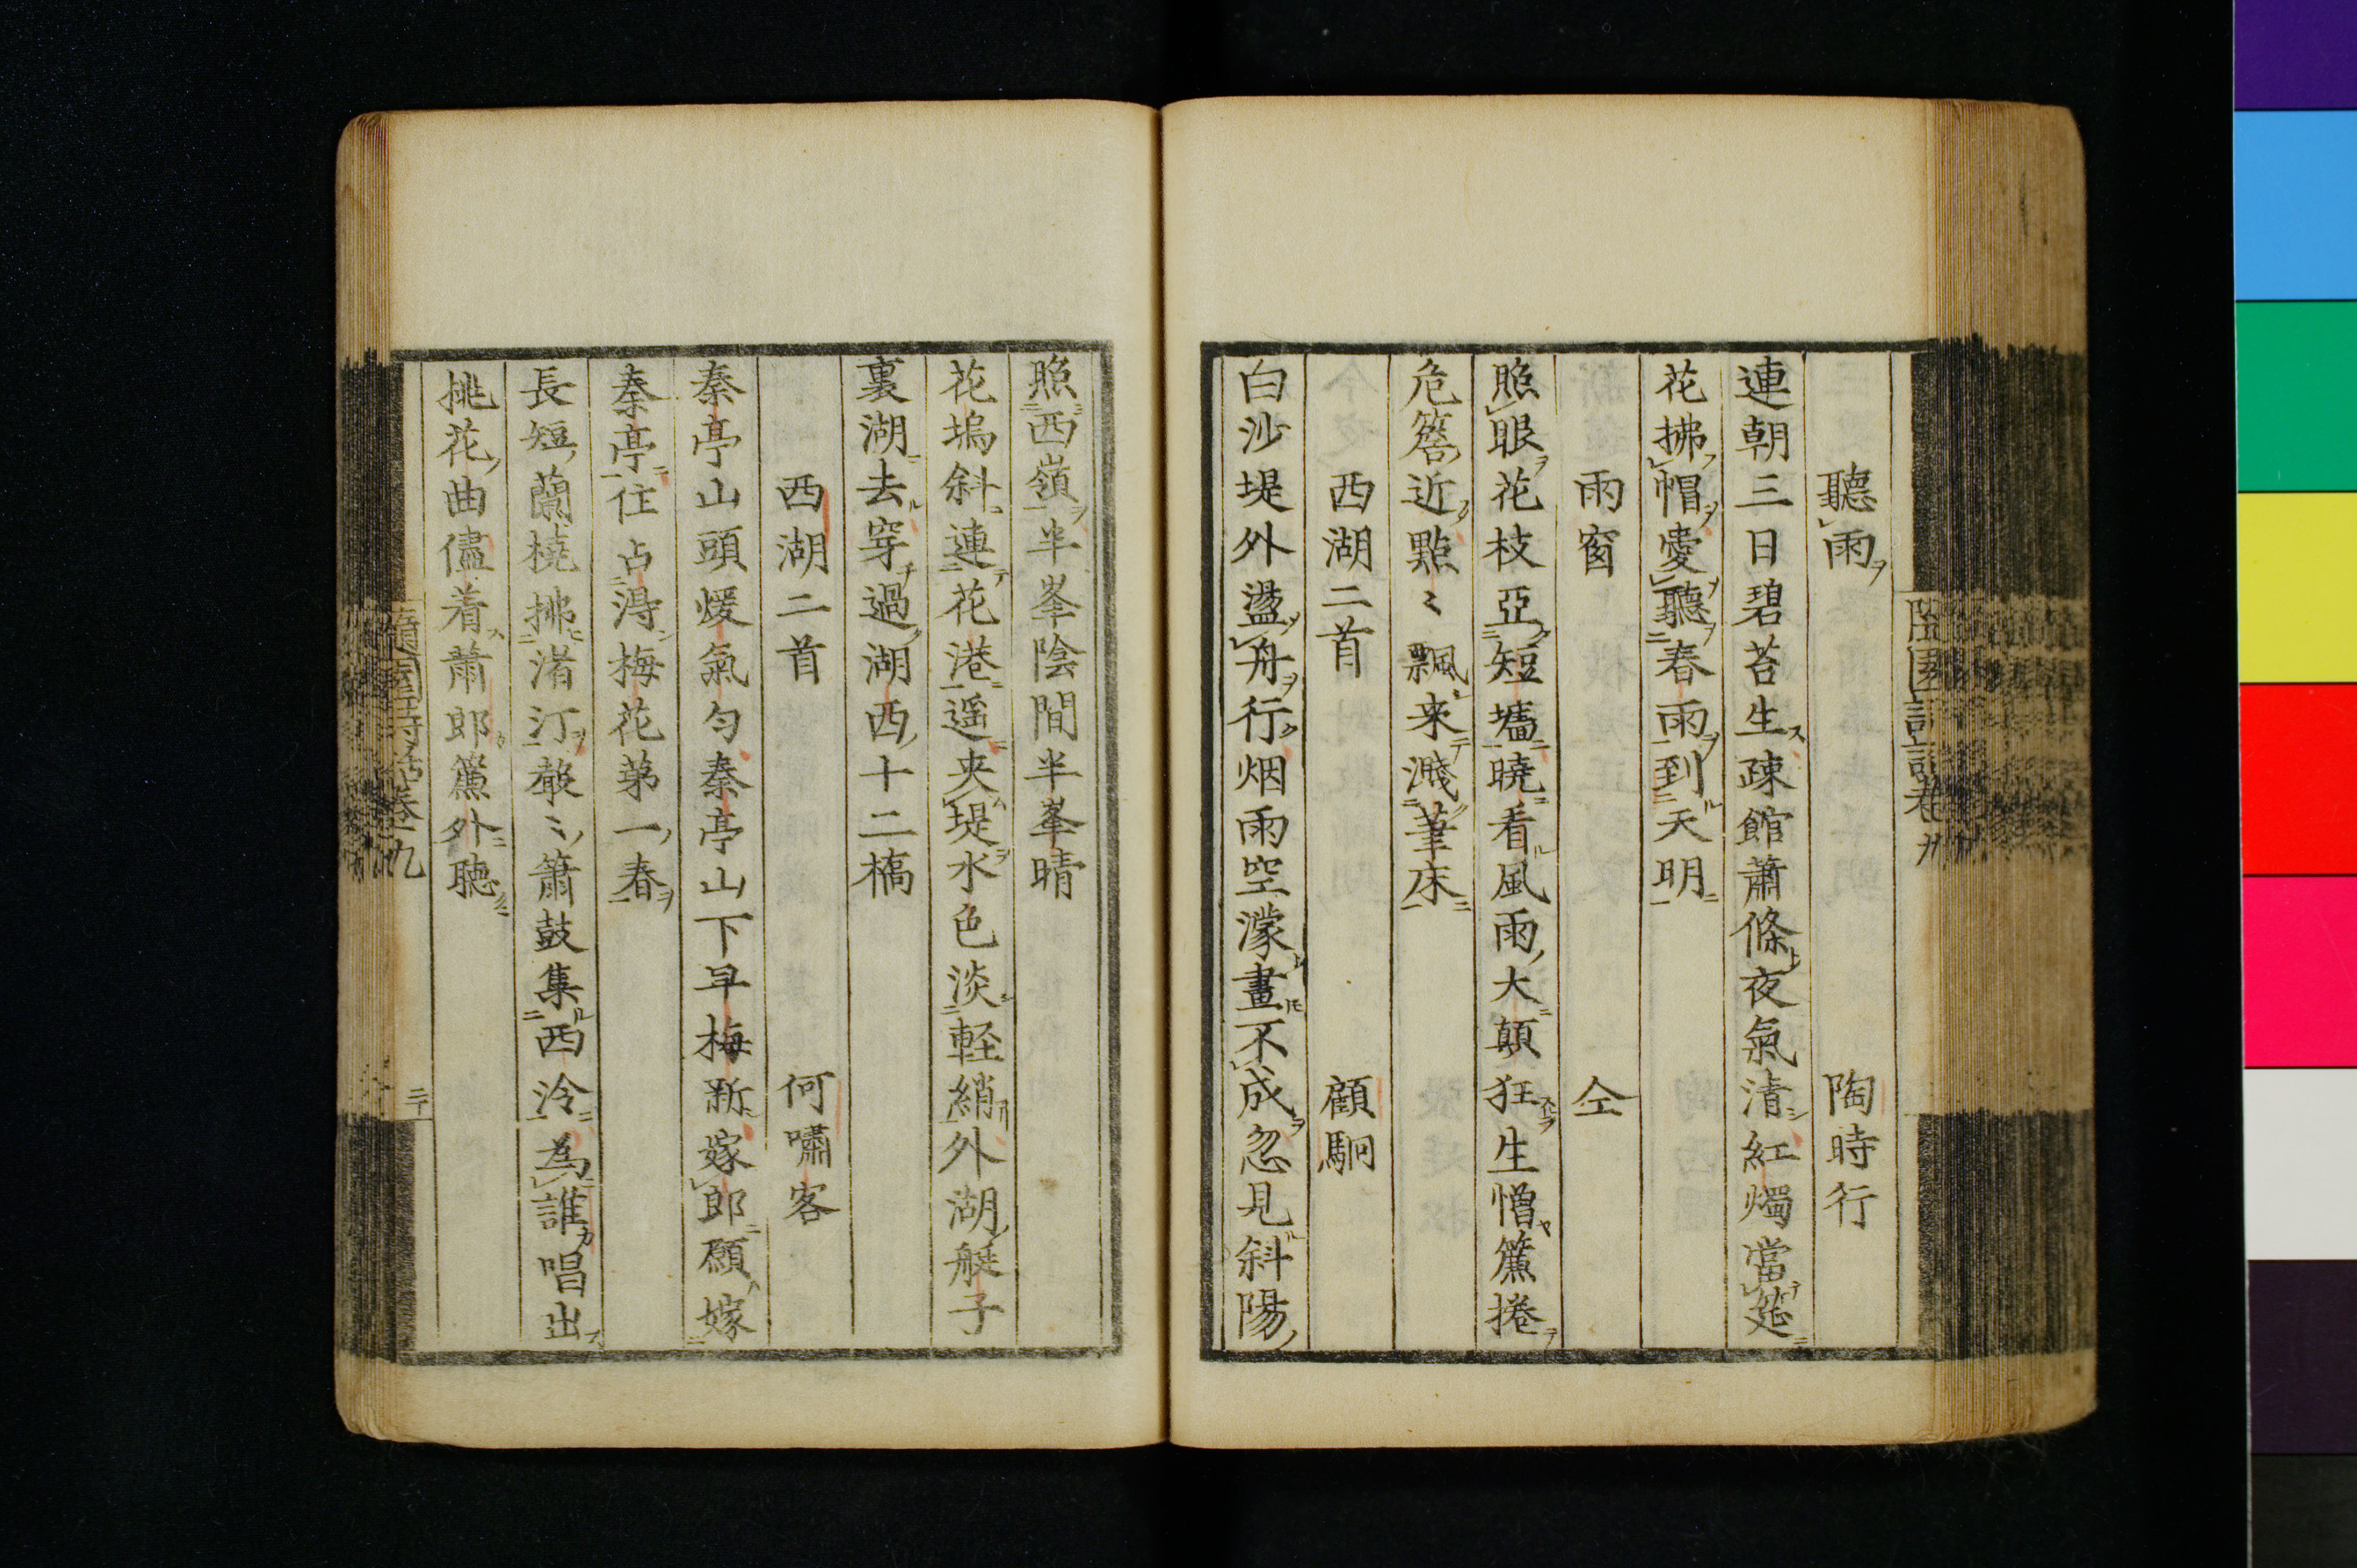 聽雨 陶時行
連朝三日碧苔生疎館蕭條夜氣清紅燭當筵
花拂帽愛聽春雨到天明
雨窗 仝
照眼花枝亞短墻曉看風雨大顛狂生憎簾捲
危簷近點〻飄来濺筆床
西湖二首 顧駉
白沙堤外盪舟行烟雨空濛畫不成忽見斜陽
照西嶺半峯陰間半峯晴
花塢斜連花港遥夾堤水色淡軽綃外湖艇子
裏湖去穿過湖西十二橋
西湖二首 何嘯客
秦亭山頭煖氣匀秦亭山下早梅新嫁郎願嫁
秦亭住占淂梅花苐一春
長短蘭橈拂渚汀㪣〻簫鼓集西泠為誰唱出
挑花曲儘着蕭郎簾外聽
隨園詩話卷九